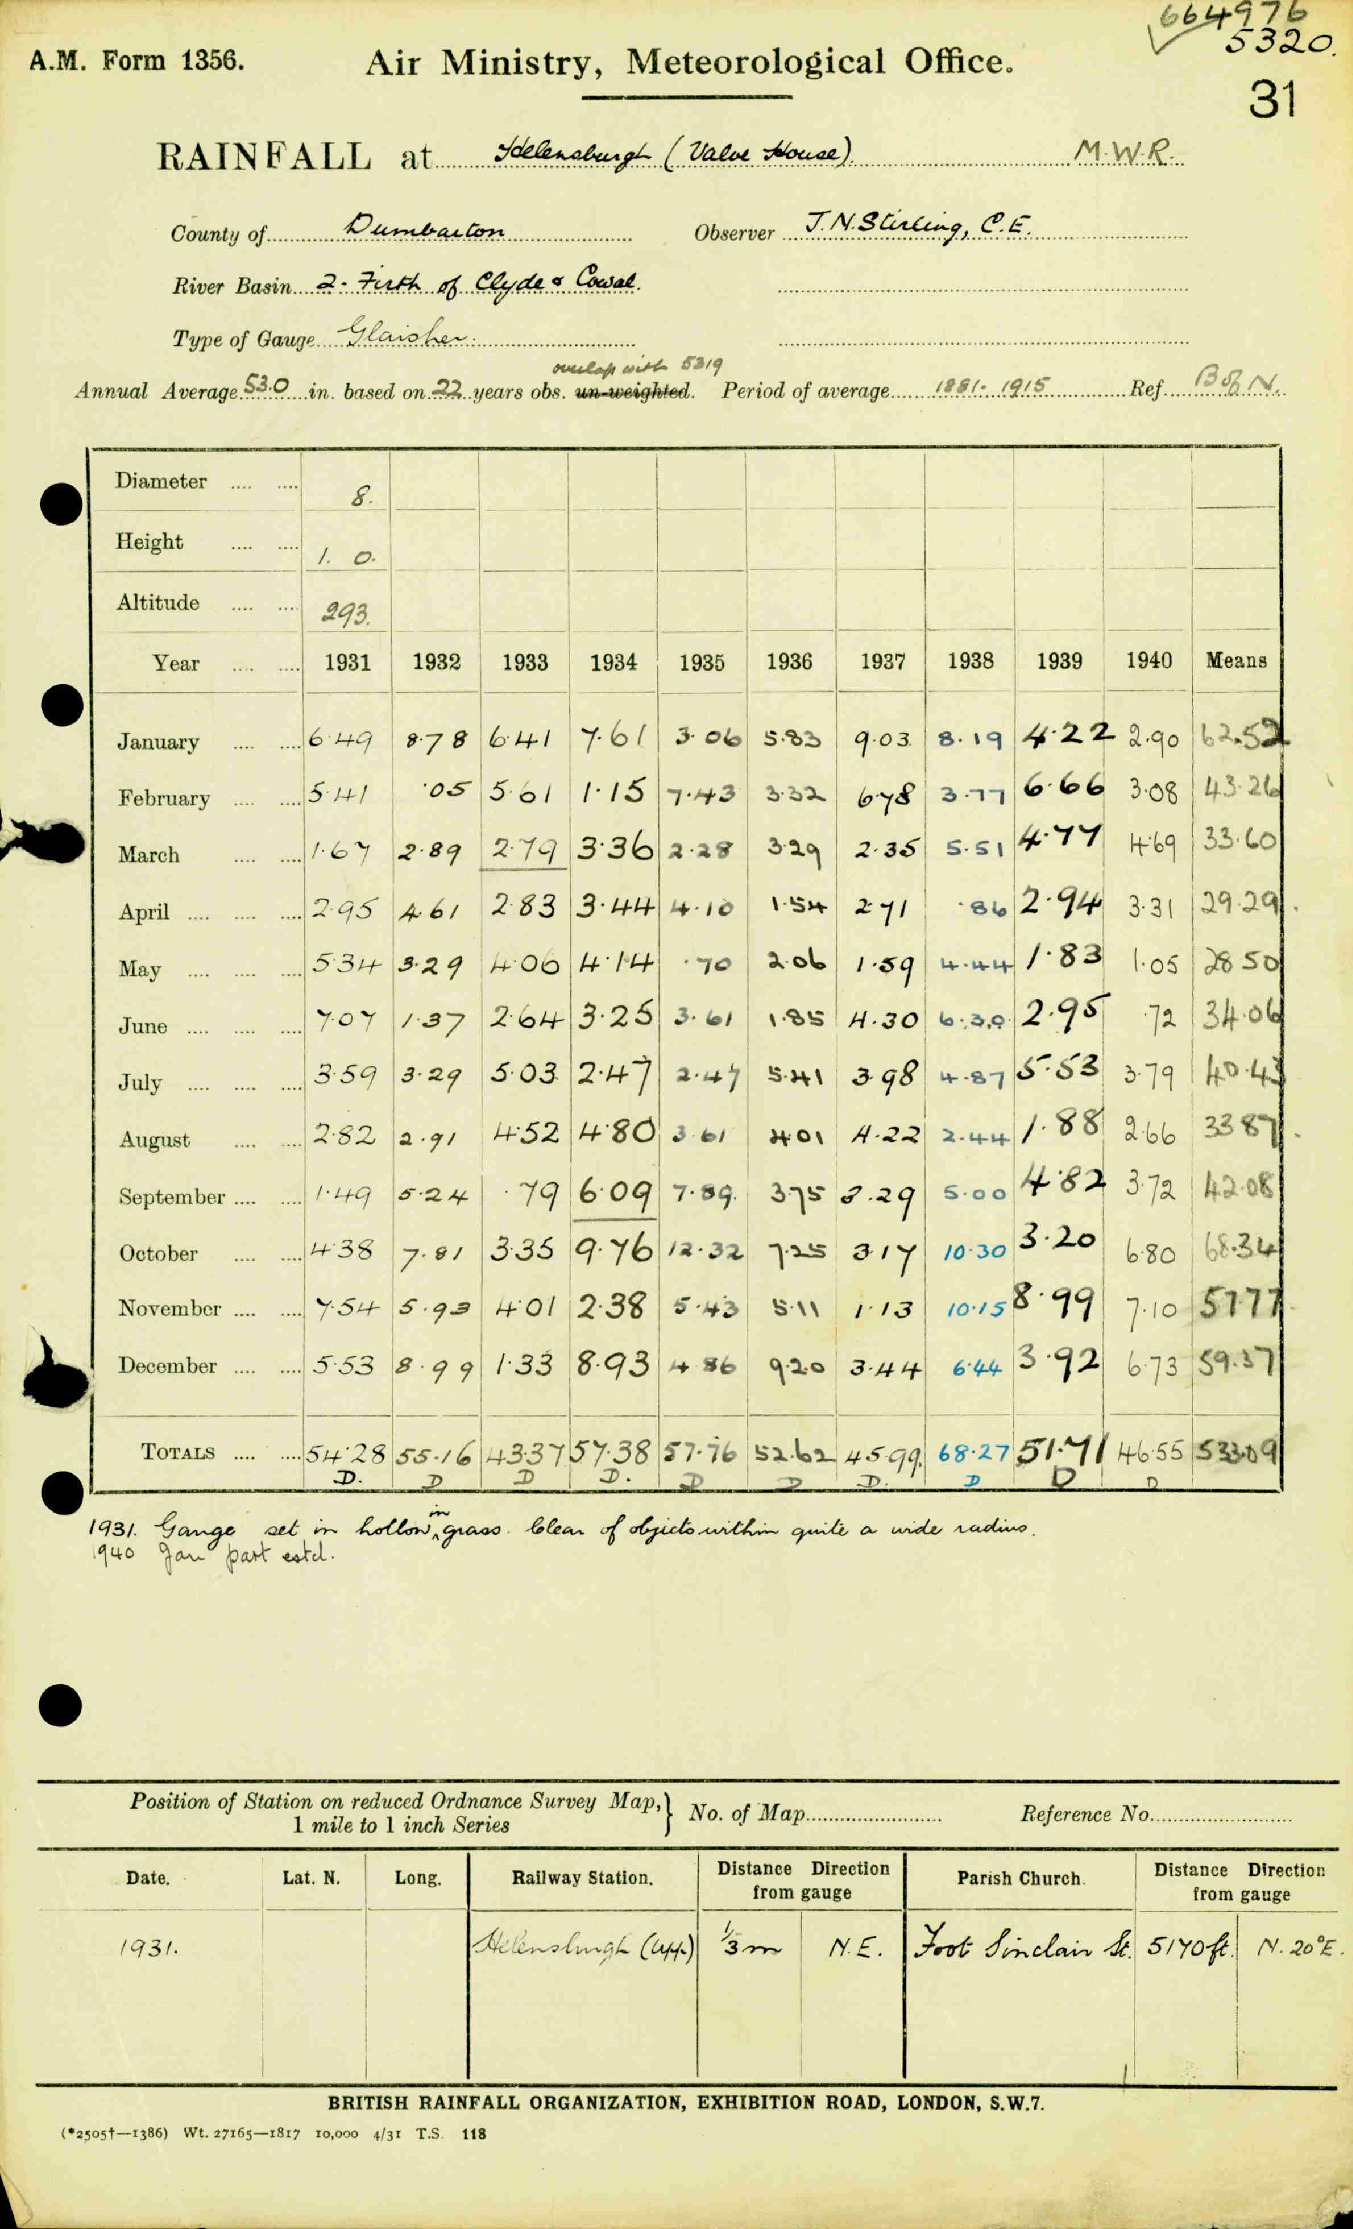 664976
5320.
A.M. Form 1356. Air Ministry, Meteorological Office.
31
RAINFALL at Helensburgh (Valve House) M.W.R.
County of Dumbarton Observer J.N. Stirling, C.E.
River Basin 2. Firth of Clyde & Cowal.
Type of Gauge Glaisher.
overlap with 5319
Annual Average 53.0 in. based on 22 years obs. un-weighted. Period of average 1881-1915 Ref. B of N.
Diameter .... .... 8.
Height .... .... 1. 0.
Altitude .... .... 293.
Year .... .... 1931 1932 1933 1934 1935 1936 1937 1938 1939 1940 Means
January .... .... 6.49 8.78 6.41 7.61 3.06 5.83 9.03 8.19 4.22 2.90 62.52
February .... .... 5.41 .05 5.61 1.15 7.43 3.32 6.78 3.77 6.66 3.08 43.26
March .... .... 1.67 2.89 2.79 3.36 2.28 3.29 2.35 5.51 4.77 4.69 33.60
April .... .... .... 2.95 4.61 2.83 3.44 4.10 1.54 2.71 .86 2.94 3.31 29.29
May .... .... .... 5.34 3.29 4.06 4.14 .70 2.06 1.59 4.44 1.83 1.05 28.50
June .... .... .... 7.07 1.37 2.64 3.25 3.61 1.85 4.30 6.30 2.95 .72 34.06
July .... .... .... 3.59 3.29 5.03 2.47 2.47 5.41 3.98 4.87 5.53 3.79 40.43
August .... .... 2.82 2.91 4.52 4.80 3.61 4.01 4.22 2.44 1.88 2.66 33.87
September .... .... 1.49 5.24 .79 6.09 7.89 3.75 3.29 5.00 4.82 3.72 42.08
October .... .... 4.38 7.81 3.35 9.76 12.32 7.25 3.17 10.30 3.20 6.80 68.34
November .... .... 7.54 5.93 4.01 2.38 5.43 5.11 1.13 10.15 8.99 7.10 57.77
December .... .... 5.53 8.99 1.33 8.93 4.86 9.20 3.44 6.44 3.92 6.73 59.37
TOTALS .... .... 54.28 55.16 43.37 57.38 57.76 52.62 45.99 68.27 51.71 46.55 533.09
D. D D D. D D D. D D D
1931. Gauge set in hollow, in grass. Clear of objects within quite a wide radius.
1940 Jan part estd.
Position of Station on reduced Ordnance Survey Map, } No. of Map Reference No.
1 mile to 1 inch Series
Date. Lat. N. Long. Railway Station. Distance Direction from gauge Parish Church. Distance Direction from gauge
1931. Helensburgh (Upp.) 1/3 m N.E. Foot Sinclair St. 5170 ft. N. 20°E.
BRITISH RAINFALL ORGANIZATION, EXHIBITION ROAD, LONDON, S.W.7.
(*2505†—1386) Wt. 27165—1817 10,000 4/31 T.S. 118